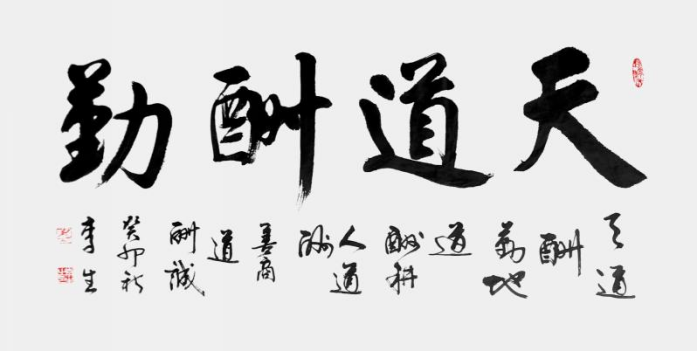 天道酬勤
天道
酬
勤地
道
酬耕
人道
酬
善商
道
酬誠
癸卯秋
李生